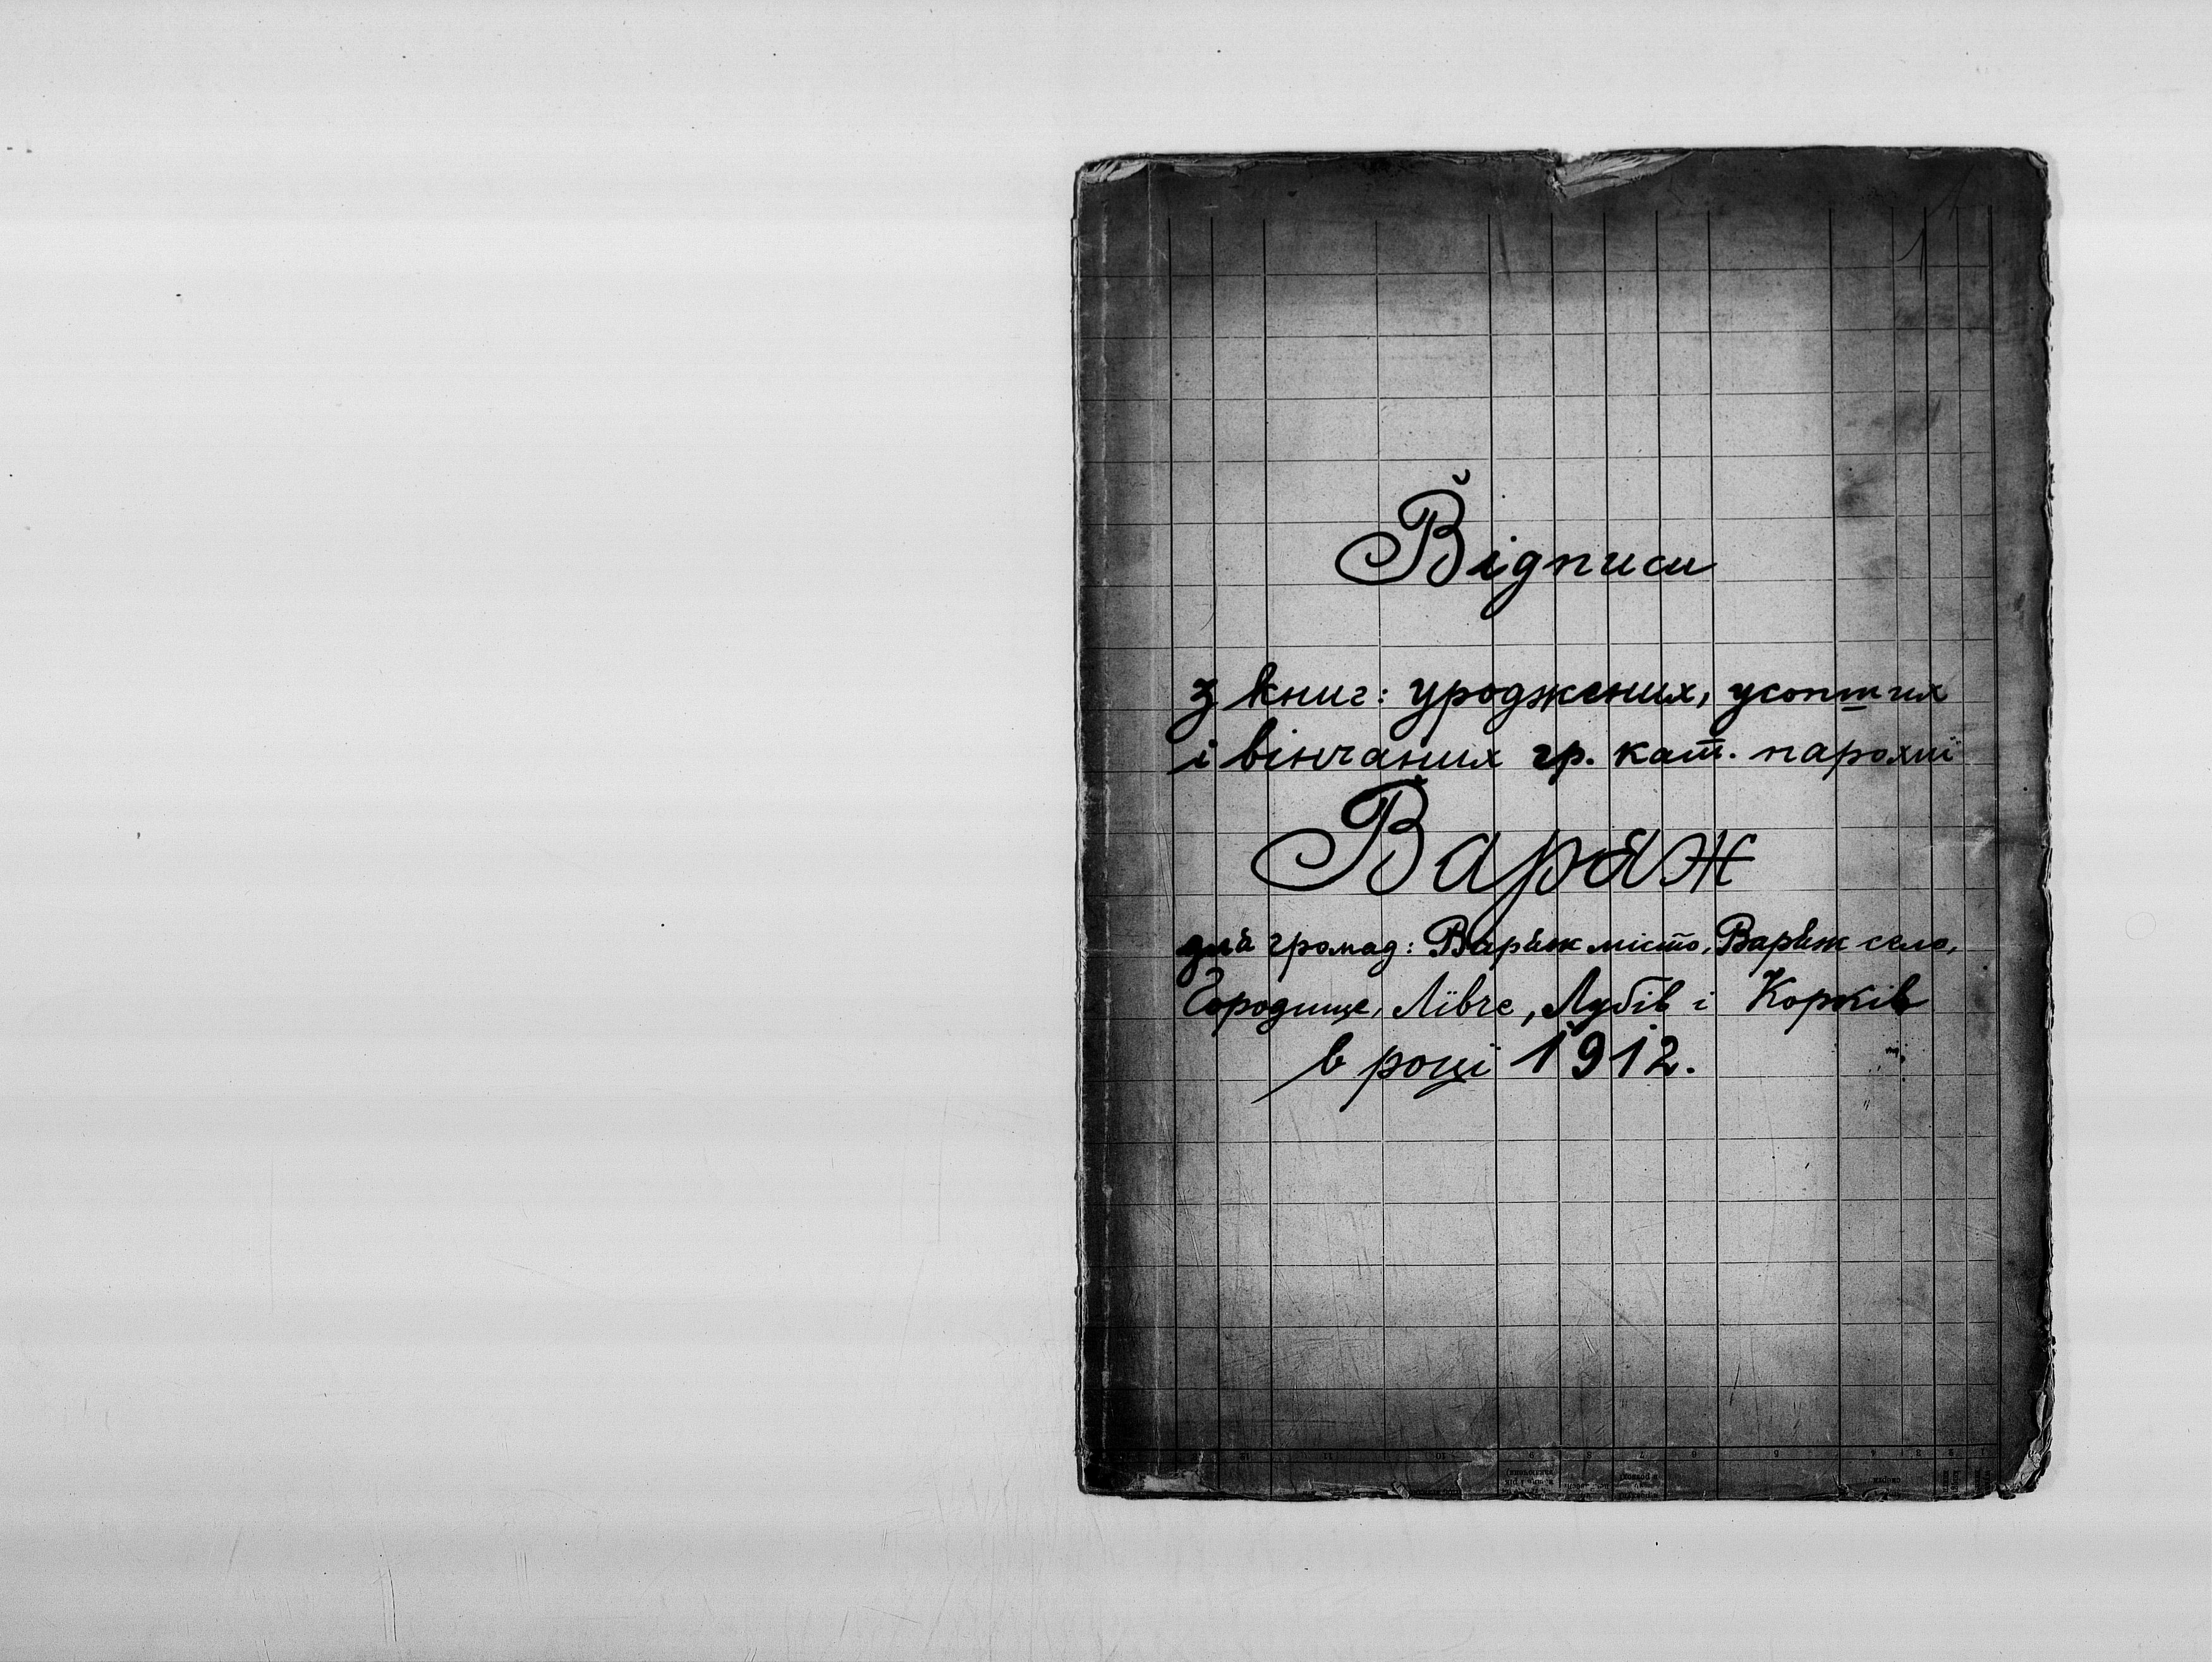 Відписи
з книг: уроджених, усопших
і вінчаних гр. кат. парохії
Варяж
для громад: Варяж місто, Варяж село,
Городище, Лївче, Лубів і Корків
в році 1912.